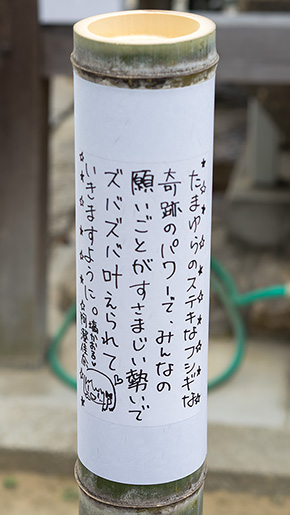 たまゆらのステキなフシギな
奇跡のパワーで、みんなの
願いごとがすさまじい勢いで
ズバズバ叶えられて
いきますように。
塙かおる♥
阿澄佳奈